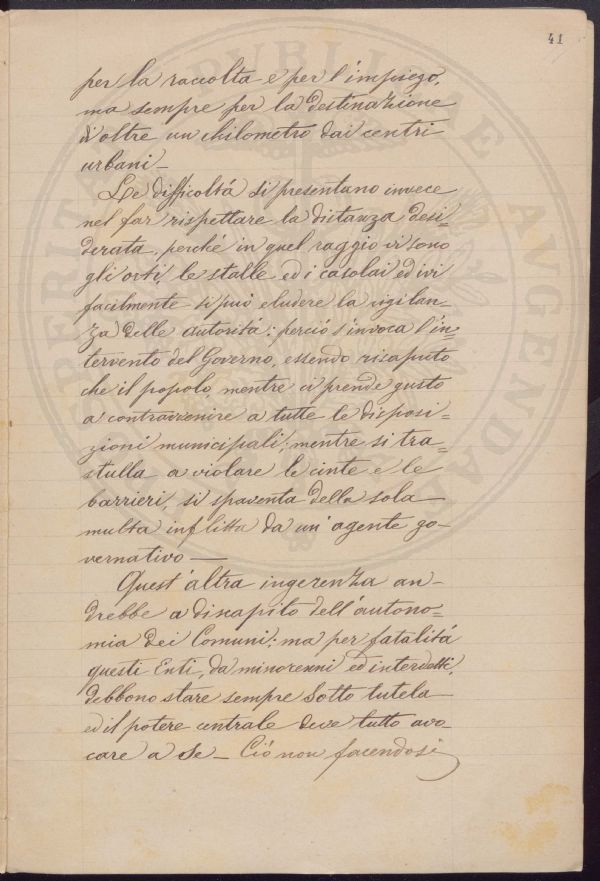 41
per la raccolta e per l'impiego,
ma sempre per la destinazione
d'oltre un chilometro dai centri
urbani –
Le difficoltá si presentano invece
nel far rispettare la distanza desi=
derata, perché in quel raggio vi sono
gli orti, le stalle ed i casolai ed ivi
facilmente si può eludere la vigilan-
za delle autoritá: perció s'invoca l'in=
tervento del Governo, essendo risaputo
che il popolo, mentre ci prende gusto
a contravvenire a tutte le disposi=
zioni municipali; mentre si tra=
stulla a violare le cinte e le
barrieri, si spaventa della sola
multa inflitta da un'agente go-
vernativo —
Quest'altra ingerenza an-
drebbe a discapito dell'autono=
mia dei Comuni; ma per fatalitá
questi Enti, da minorenni ed interdetti,
debbono stare sempre sotto tutela
ed il potere centrale deve tutto avo
care a se – Ció non facendosi
PUBLICAE
AVGENDAE